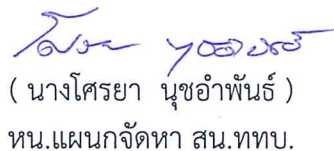 ( นางโศรยา นุชอำพันธ์ )
หน.แผนกจัดหา สน.ททบ.